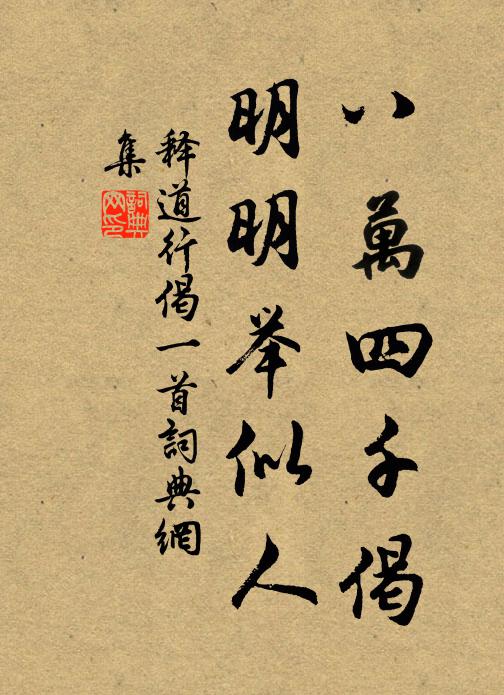 八萬四千偈
明明举似人
释道行偈一首詞典網
集
詞典網印